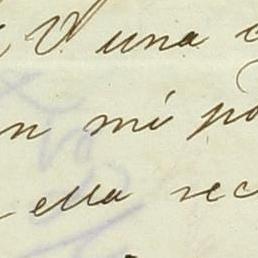 una
n mi po
ella rec